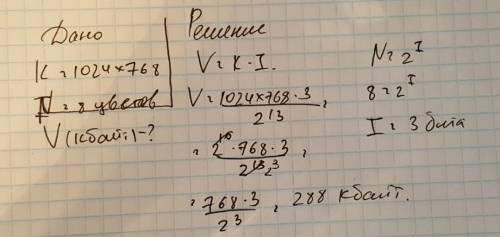 Дано
K = 1024×768
N = 8 цветов
V (кбайт) - ?
Решение
V = K · I.
V = 1024×768 · 3 / 2^13 =
= 2^10 · 768 · 3 / 2^13 2^3 =
= 768 · 3 / 2^3 = 288 кбайт.
N = 2^I
8 = 2^I
I = 3 бита